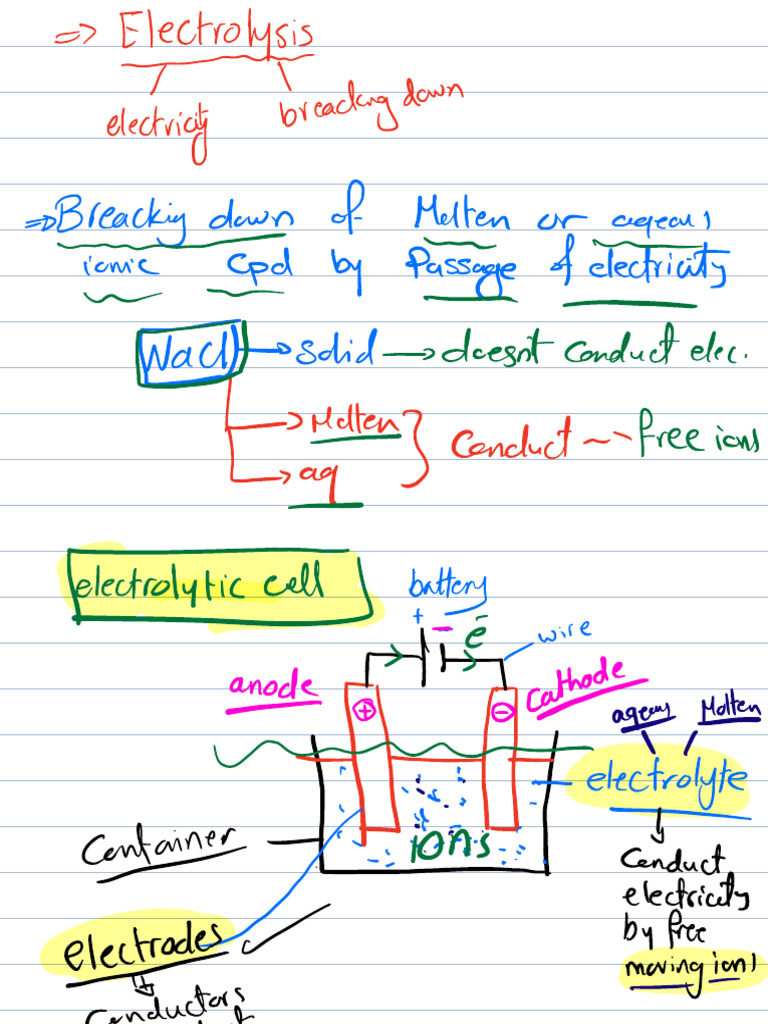 ⇒ Electrolysis
electricity breacking down
⇒ Breackig down of Molten or aqeous
ionic Cpd by Passage of electricity
NaCl → Solid → doesnt conduct elec.
→ Molten
Conduct ~ free ions
→ aq
electrolytic cell
battery
+ − e⁻
wire
anode
cathode
+ −
aqeous Molten
electrolyte
Container
ions
Conduct
electricity
by free
moving ions
electrodes
Conductors